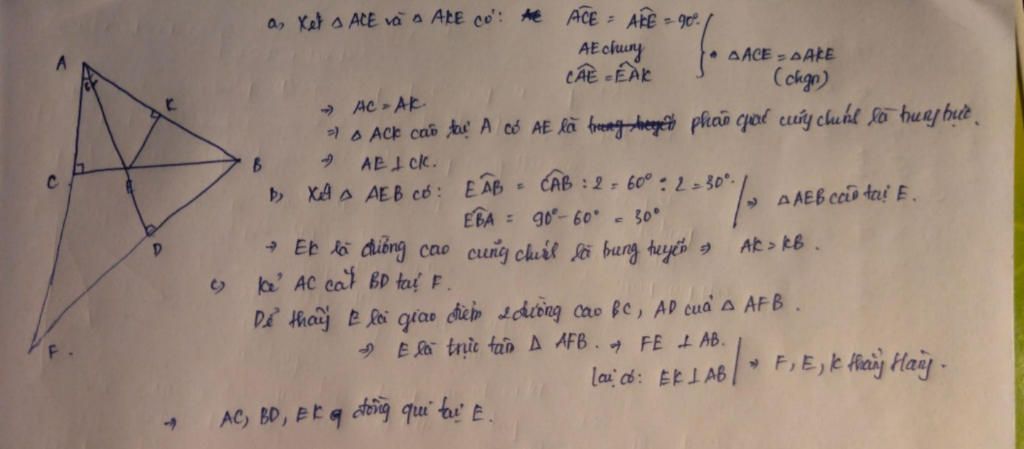 a, Xét △ ACE và △ AKE có: ACE = AKE = 90°
AE chung
CAE = EAK
△ ACE = △ AKE
(chgn)
⇒ AC = AK.
⇒ △ ACK cân tại A có AE là phân giác cũng chính là trung trực.
⇒ AE ⊥ CK.
b, Xét △ AEB có: EAB = CAB : 2 = 60° : 2 = 30°.
EBA = 90° - 60° = 30°
⇒ △ AEB cân tại E.
⇒ EK là đường cao cũng chính là trung tuyến ⇒ AK = KB.
c, Kẻ AC cắt BD tại F.
Dễ thấy E là giao điểm 2 đường cao BC, AD của △ AFB.
⇒ E là trực tâm △ AFB. ⇒ FE ⊥ AB.
lại có: EK ⊥ AB
⇒ F, E, K thẳng hàng.
⇒ AC, BD, EK đồng qui tại E.
A
K
C
E
B
D
F.